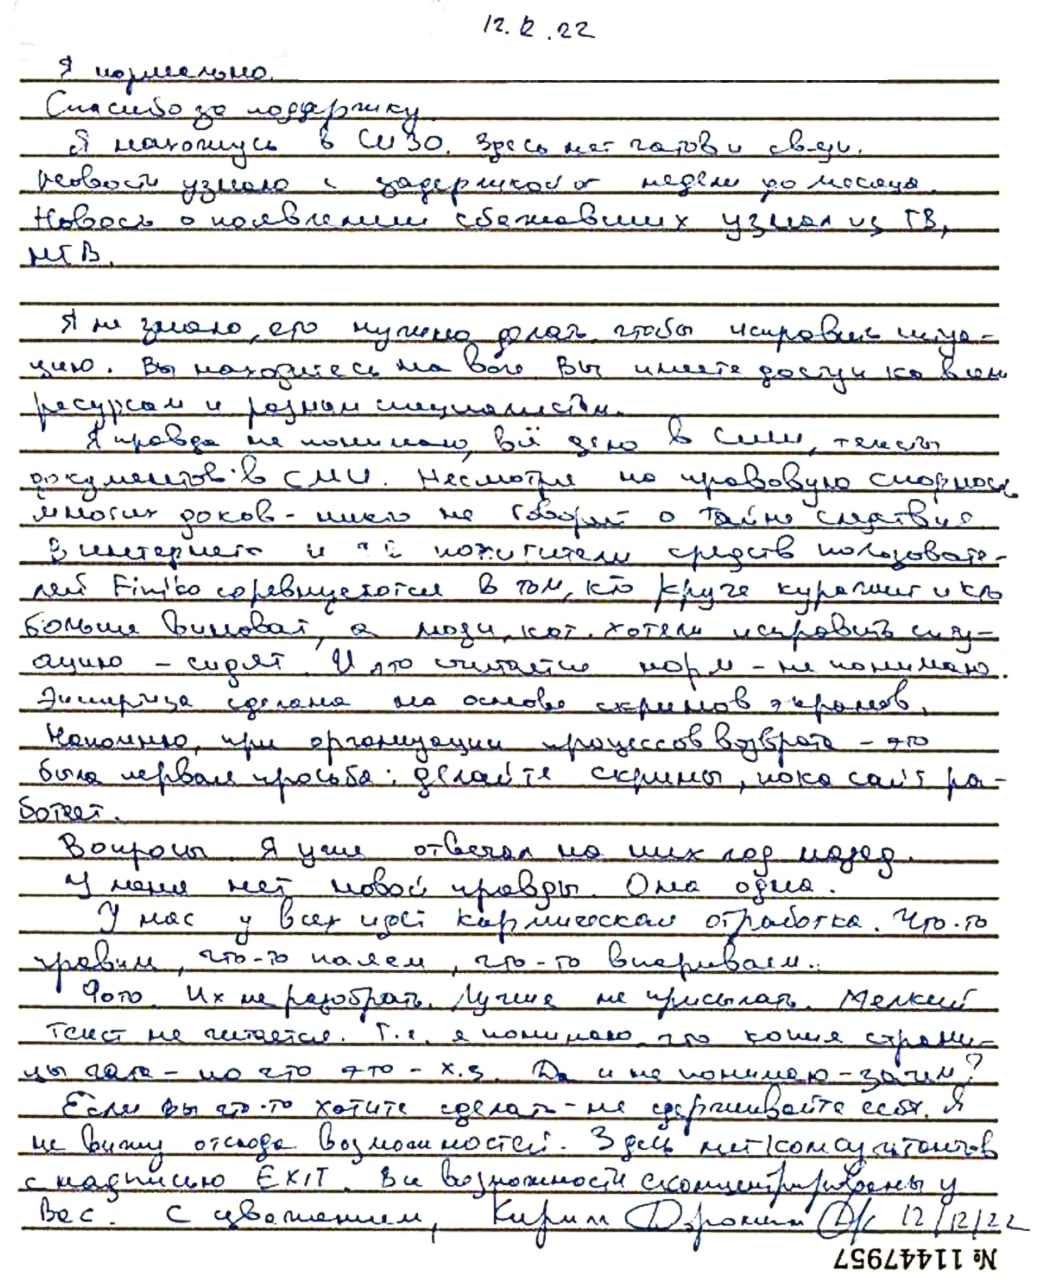 12.12.22
Я нормально.
Спасибо за поддержку.
Я нахожусь в СИЗО. Здесь нет чатов и связи.
Новости узнаю с задержкой от недели до месяца.
Новость о появлении сбежавших узнал из ТВ,
НТВ.
Я не знаю, что нужно делать чтобы исправить ситуа-
цию. Вы находитесь на воле. Вы имеете доступ ко всем
ресурсам и разным специалистам.
Я правда не понимаю, всё дело в СМИ, тексты
документов в СМИ. Несмотря на правовую спорность
многих доков - никто не говорит о тайне следствия
В интернете и похитители средств пользовате-
лей Finiko соревнуются в том, кто круче куражит и кто
больше виноват, а люди, кот. хотели исправить ситу-
ацию - сидят. И это считается норм - не понимаю.
Экспертиза сделана на основе скринов экранов.
Напомню, при организации процессов возврата - это
была первая просьба: делайте скрины, пока сайт ра-
ботает.
Вопросы. Я уже отвечал на них год назад.
У меня нет новой правды. Она одна.
У нас у всех идёт кармическая отработка. Что-то
правим, что-то палем, что-то впариваем..
Фото. Их не разобрать. Лучше не присылать. Мелкий
текст не читается. Т.е. я понимаю, что копия страни-
цы чата - но что это - х.з. Да и не понимаю - зачем?
Если вы что-то хотите сделать - не сдерживайте себя. Я
не вижу отсюда возможностей. Здесь нет консультантов
с надписью EXIT. Все возможности сконцентрированы у
Вас. С уважением, Кирилл Доронин 12/12/22
№ 11447957